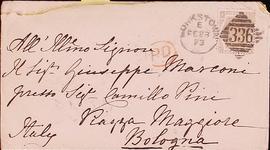 MONKSTOWN
E
FE 28
73
336
PD
All'Illmo Signore
Il Sigr. Giuseppe Marconi
presso Sigr. Camillo Pini
Piazza Maggiore
Italy Bologna